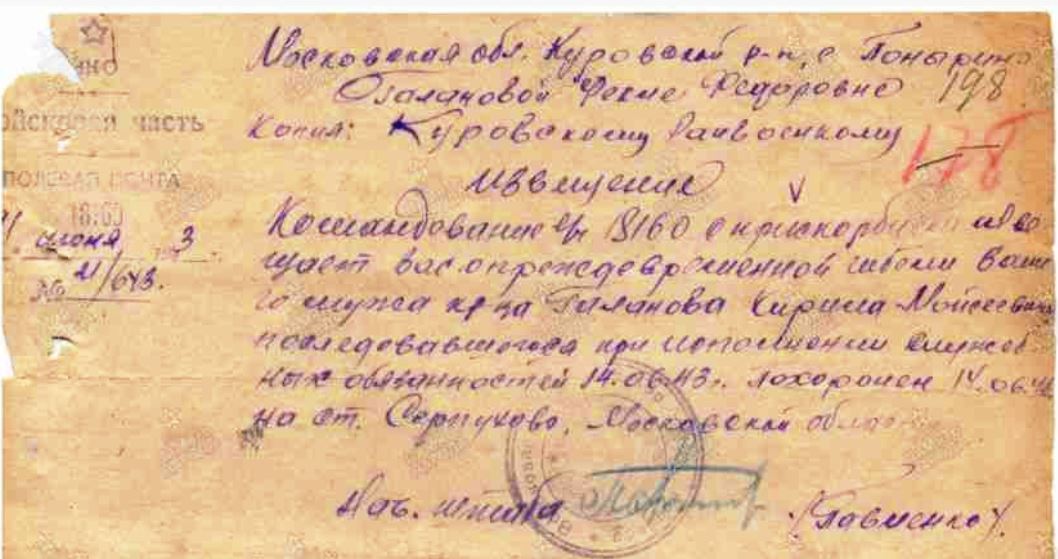 НКО
войсковая часть
ПОЛЕВАЯ ПОЧТА
18160
июня 3
№ 21/643.
Московская обл. Куровской р-н, с Понарино
Галановой Фекле Федоровне 198
Копия: Куровскому Райвоенкому
178
Извещение
Командование в/ч 18160 с прискорбием изве
щает вас о преждевременной гибели Ваше
го мужа кр-ца Галанова Кирила Моисеевича
последовавшегося при исполнении служеб
ных обязанностей 14.06.43г. похоронен 14.06.43
на ст. Серпухово, Московской област
Нач. штаба /Павленко/.